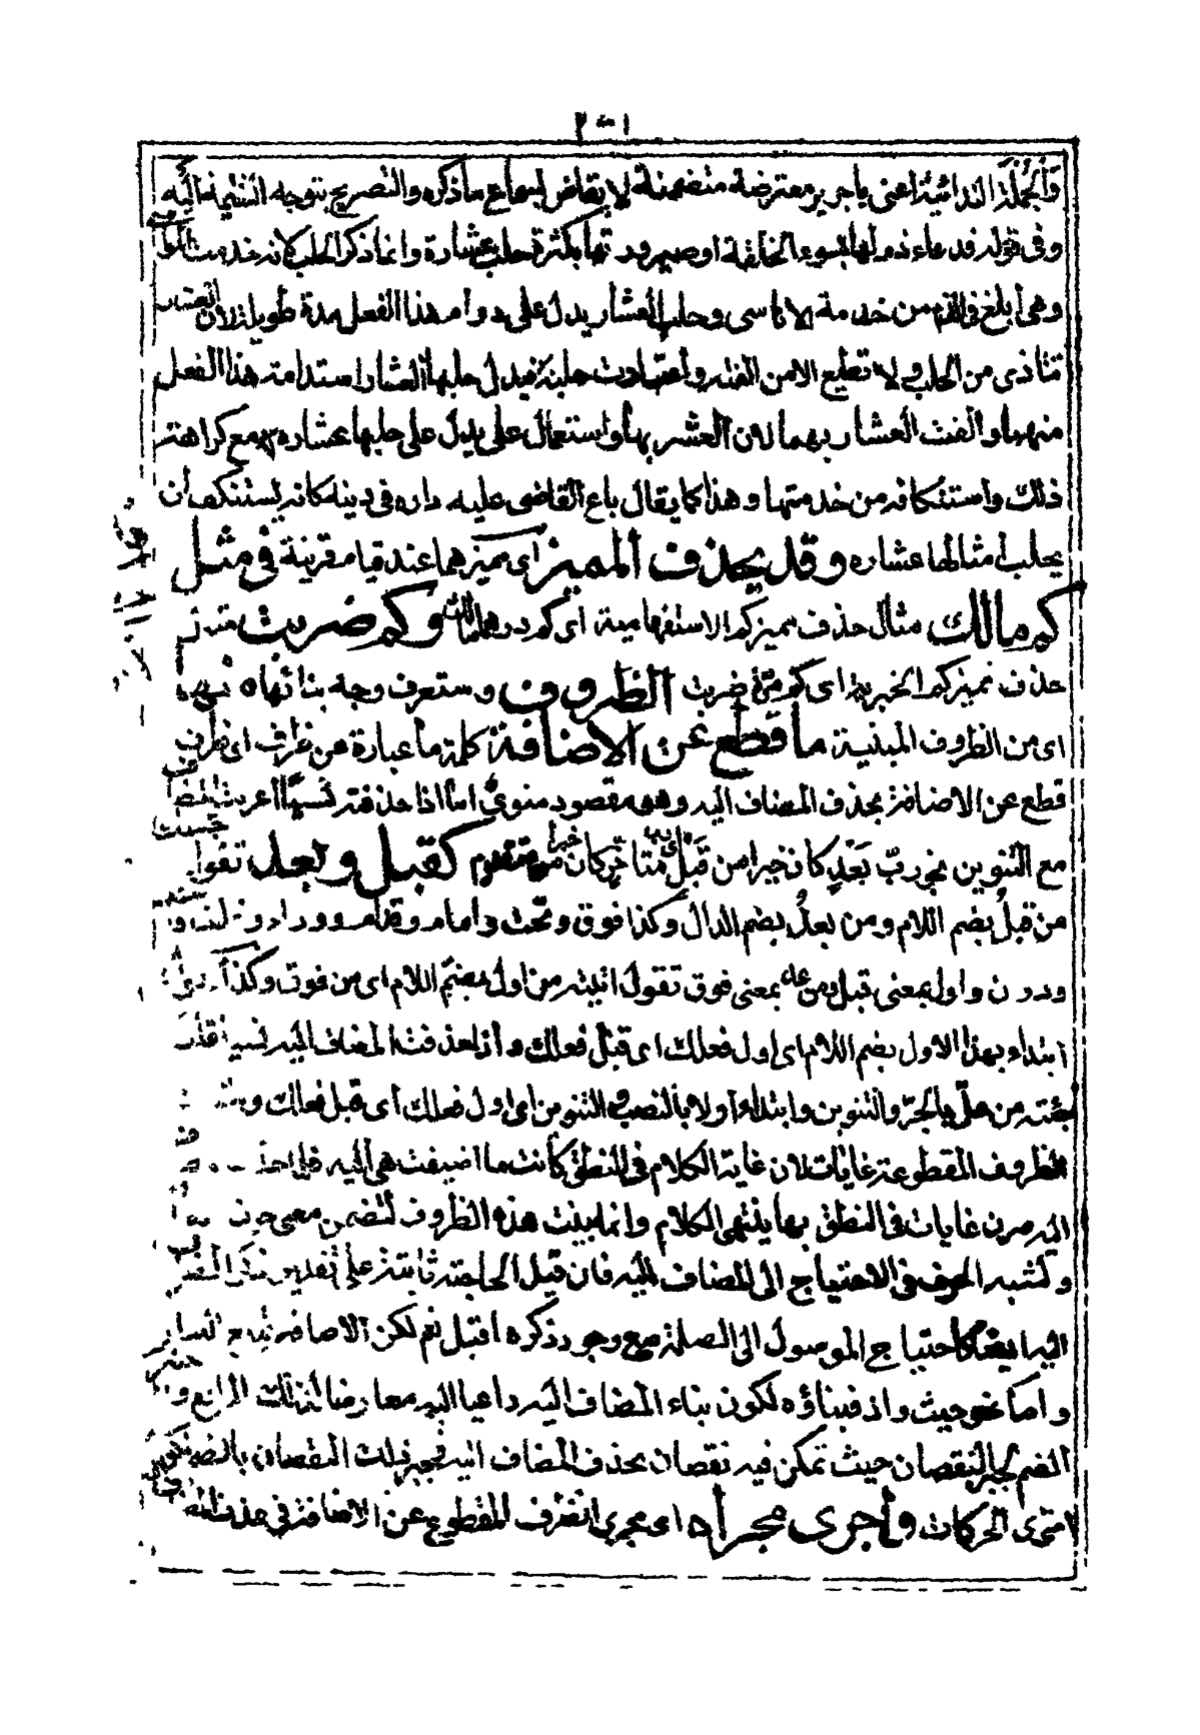 ٢٠١
والجملة الندائية اعنى ياجرير معترضة متضمنة لايقاض لسماع ماذكره والتصريح بتوجه الشتيمة اليه
وفى قوله فدعاء ذم لها بسوء الخلقة اوصيرورتها بكثرة حلب عشاره وانما ذكر الحلب لانه خدمة
وهى ابلغ فى الذم من خدمة الاناسى وحلب العشار يدل على دوام هذا الفعل مدة طويلة لان العشار
تتاذى من الحلب ولا تطيع الا من الفته واعتادت حلبته فيدل حلبها العشار استدامة هذا الفعل
منهما والفت العشار بهما لان العشر بها واستعمال على يدل على حلبها عشاره مع كراهته
ذلك واستنكافه من خدمتها وهذا كما يقال باع القاضى عليه داره فى دينه كانه يستنكف أن
يحلب أمثالها عشاره وقد يحذف المميز اى مميزهما عند قيام قرينة فى مثل
كم مالك مثال حذف مميز كم الاستفهامية اى كم درهما مالك وكم ضربت
حذف مميز كم الخبرية اى كم مرة ضربت الظروف وستعرف وجه بنائها
اى من الظروف المبنية ما قطع عن الاضافة كلمة ما عبارة عن ظرف اى ظرف
قطع عن الاضافة بحذف المضاف اليه وهو مقصود منوى اما اذا حذفته نسيا اعربت
مع التنوين نحو ربّ بَعْدٍ كان خيرا من قَبْلٍ كقبل وبعد تقول
من قبلُ بضم اللام ومن بعدُ بضم الدال وكذا فوق وتحت وامام وقدام ووراء
ودون واول بمعنى قبل ومن عل بمعنى فوق تقول اتيته من اول بضم اللام اى من فوق وكذا
ابتداء بهذا الاول بضم اللام اى اول فعلك اى قبل فعلك واذا حذفت المضاف اليه نسيا قلت
جئته من علٍ بالجرّ والتنوين وابتداء اولا بالنصب والتنوين اى اول فعلك اى قبل فعلك
الظروف المقطوعة غايات لان غاية الكلام فى النطق كانت ما اضيفت هى اليه فلما حذف
صرن غايات فى النطق بها ينتهى الكلام وانما بنيت هذه الظروف لتضمن معنى حرف
وشبه الحرف فى الاحتياج الى المضاف اليه فان قيل الحاجة ثابتة على تقدير ذكر المضاف
اليه ايضا كاحتياج الموصول الى الصلة مع وجود ذكره اقبل نعم لكن الاضافة
واما نحو حيث واذ فبناؤه لكون بناء المضاف اليه داعيا اليه معارضا لذلك المانع
الضم لجبر النقصان حيث تمكن فيه نقصان بحذف المضاف اليه فجبر ذلك النقصان بالضم
اقوى الحركات وأجرى مجراه اى مجرى الظرف المقطوع عن الاضافة فى حذف